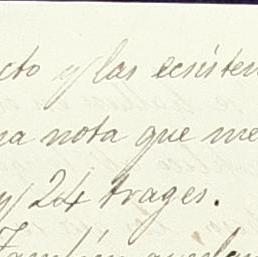 cto y las ecsisten
na nota que me
y 24 trages.
También quedan